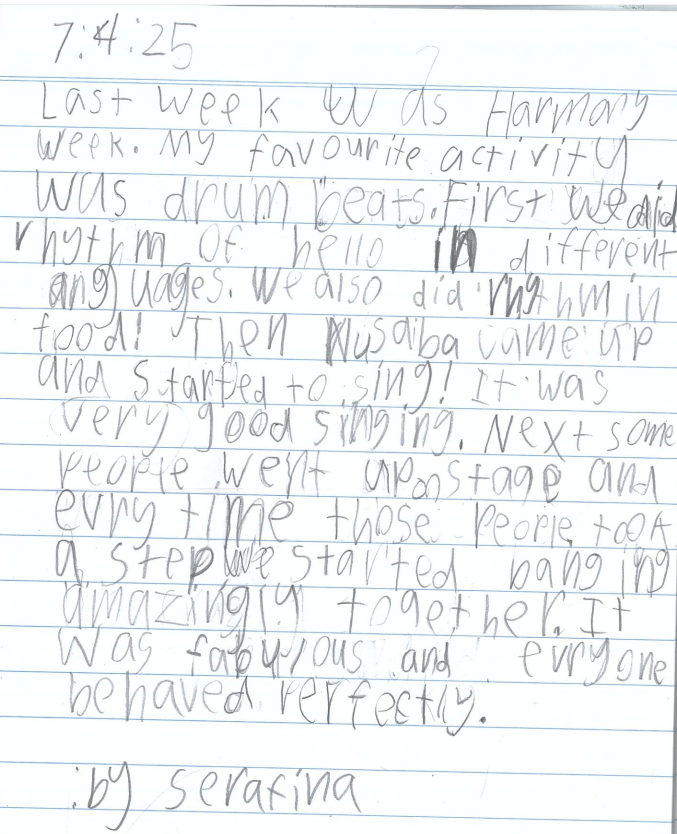 7:4:25
Last week was Harmony
week. My favourite activity
was drum beats. First we did
rhythm of hello in different
languages. We also did rhythm in
food! Then Nusaiba came up
and started to sing! It was
very good singing. Next some
people went up on stage and
evry time those people took
a step we started banging
amazingly together. It
was fabulous and evryone
behaved perfectly.
:by serafina